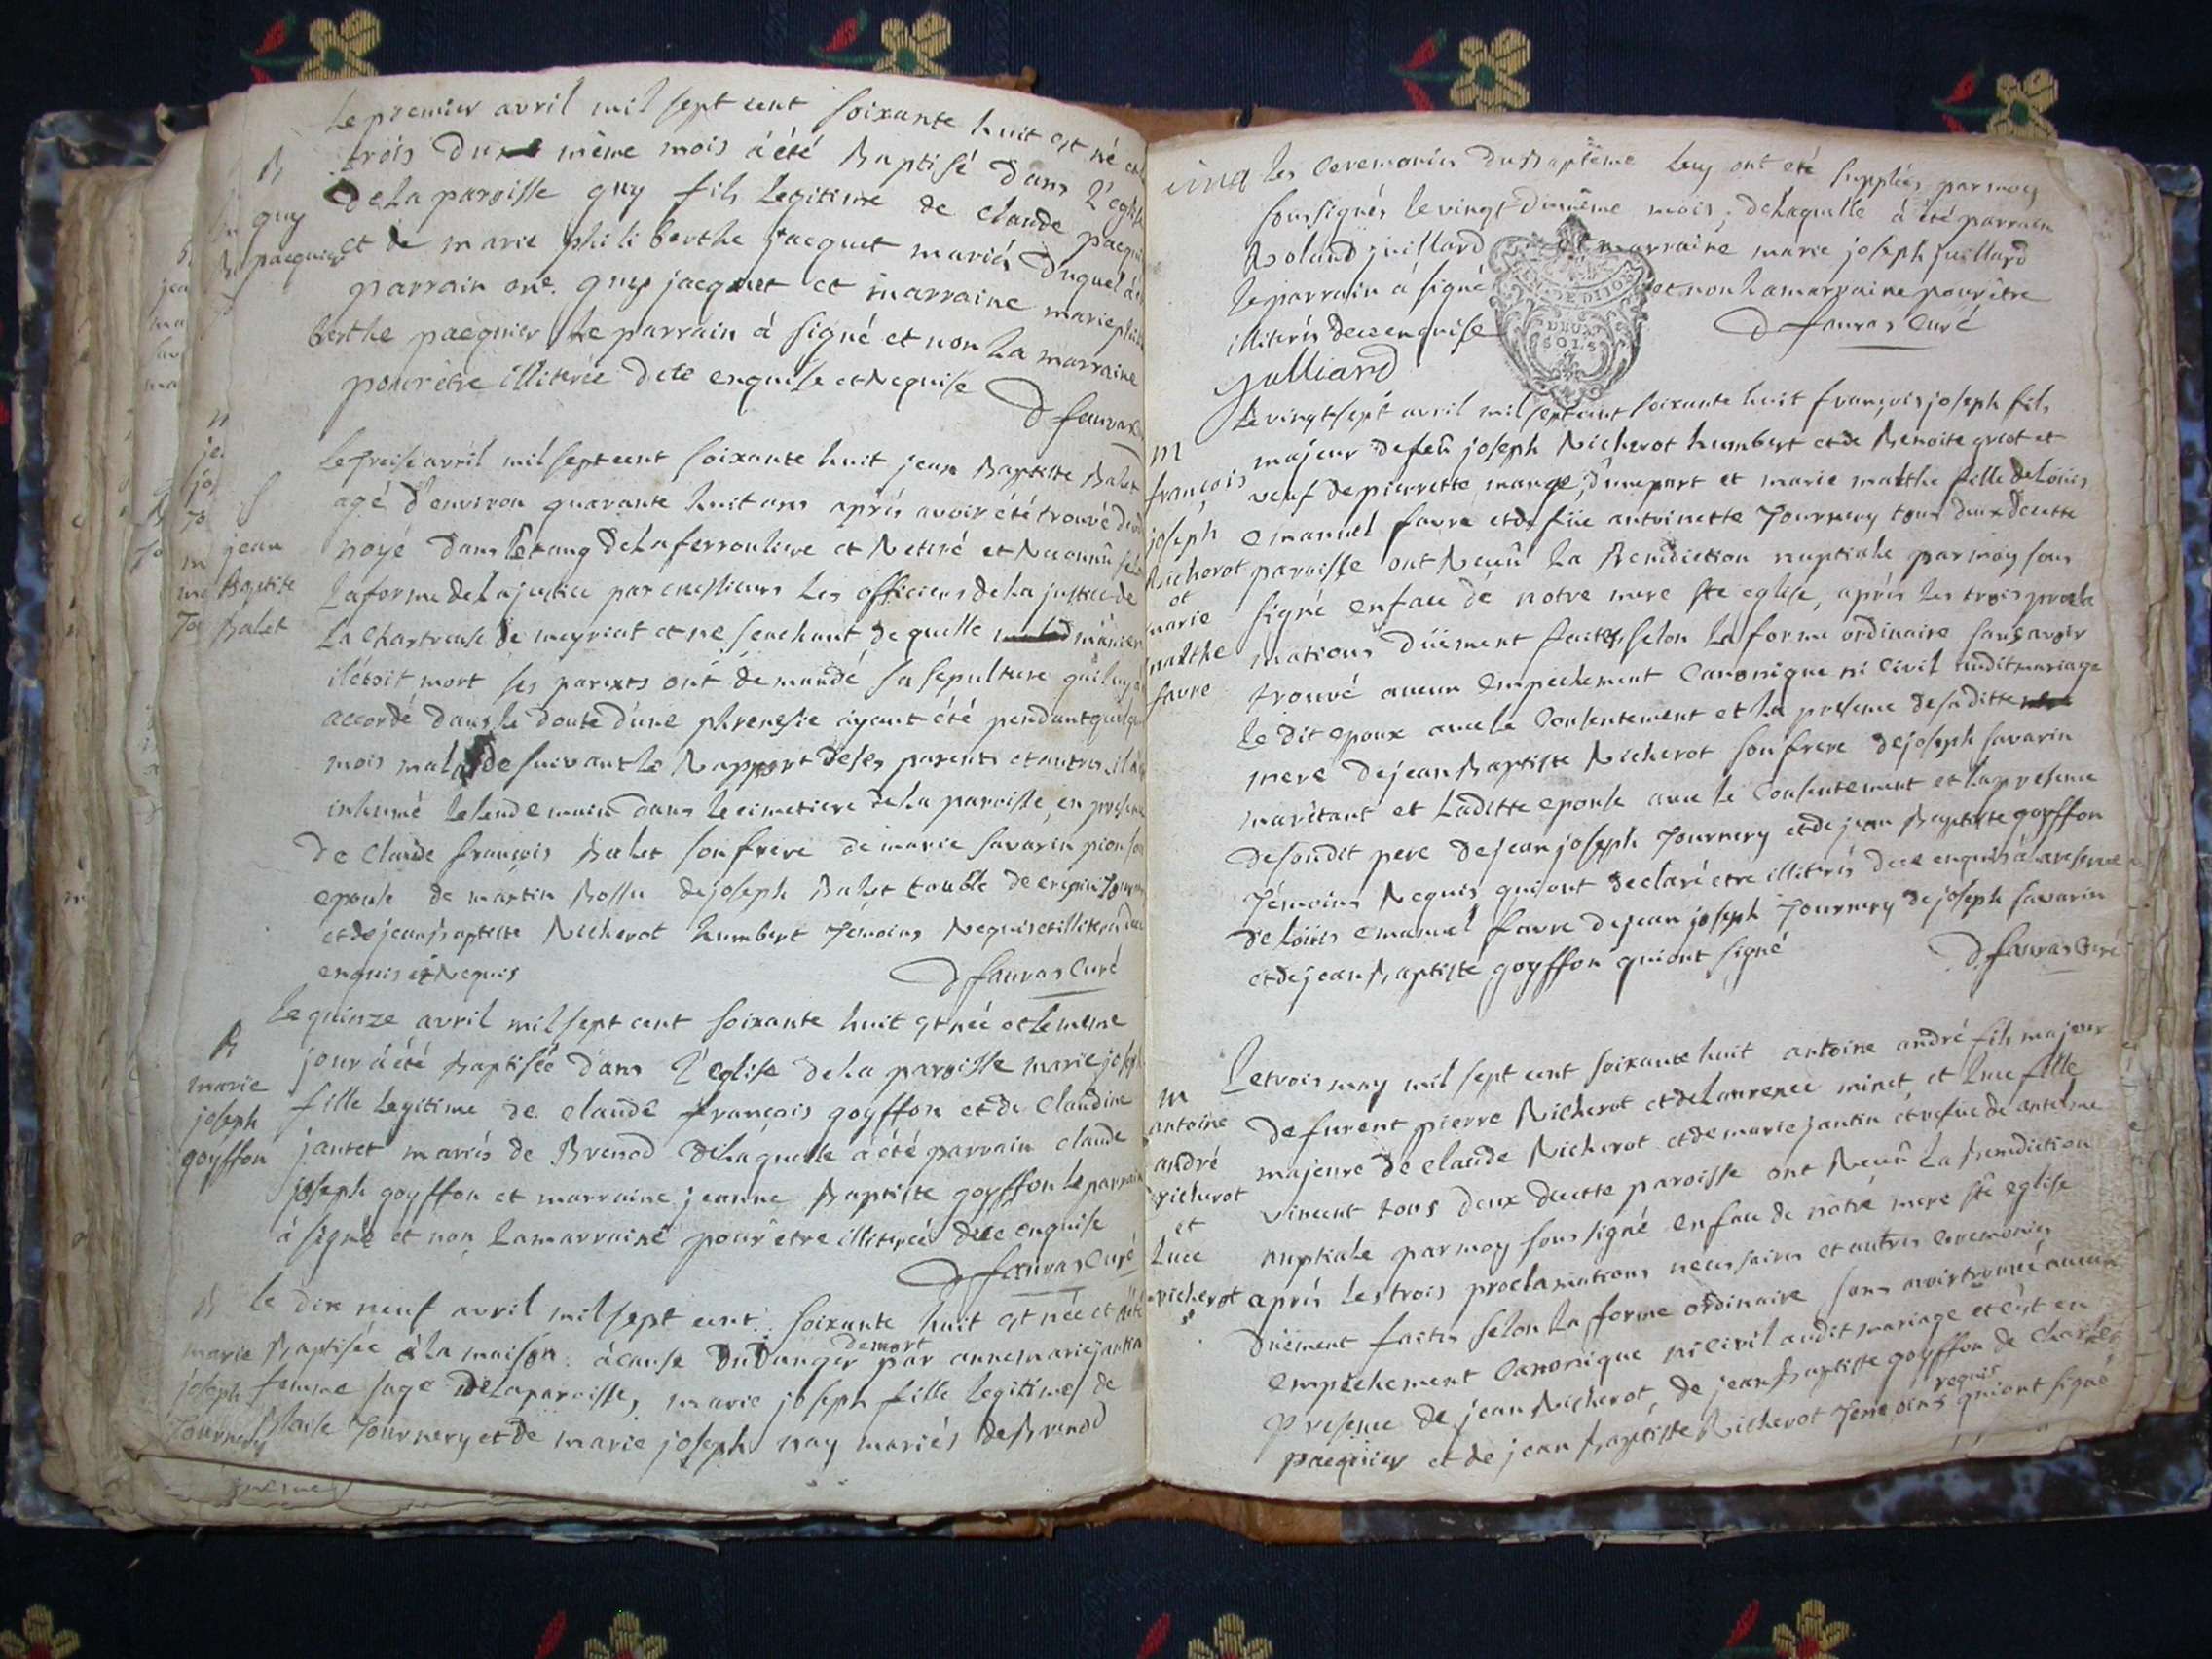 Le premier avril mil sept cent soixante huit est né et le
B trois du même mois à été Baptisé dans l'eglise
guy de la paroisse guy fils legitime de claude pacquier
pacquier et de marie philiberthe jacquet mariés duquel à
parrain guy jacquet et marraine marie phili
berthe pacquier le parrain à signé et non la marraine
pour être illiterée de ce enquise et Requise
D fauvas
Le treise avril mil sept cent soixante huit jean Baptiste Balet
S agé d'environ quarante huit ans après avoir été trouvé
jean noyé dans l'etang de la ferrouliere et Retiré et Reconnû
Baptiste la forme de la justice par messieurs les officiers de la justice de
Balet la Chartreuse de meyriat et ne scachant de quelle maniere
il étoit mort ses parents ont demandé sa sepulture
accordé dans le doute d'une phrenesie ayant été pendant quelque
mois malade suivant le Rapport de ses parents et autres
inhumé le lendemain dans le cimetiere de la paroisse, en presence
de Claude françois Balet son frere de marie savarin
epouse de martin Bollu de joseph Balet
et de jean Baptiste Richerot humbert Témoins Requis et illiterés
enquis et Requis
D fauvas Curé
Le quinze avril mil sept cent soixante huit est née et le meme
B jour à été Baptisée dans l'eglise de la paroisse marie joseph
marie fille legitime de claude françois goyffon et de Claudine
joseph jantet mariés de Brenod de laquelle à été parrain claude
goyffon joseph goyffon et marraine jeanne Baptiste goyffon le parrain
à signé et non la marraine pour être illiterée de ce enquise
D fauvas Curé
B le dix neuf avril mil sept cent soixante huit est née et été
marie Baptisée à la maison à cause du danger de mort par anne marie jantin
joseph femme sage de la paroisse, marie joseph fille legitime de
Tournery Blaise Tournery et de marie joseph nay mariés de Brenod
cinq les Ceremonies du Baptême luy ont été suppléés par moy
soussignés le vingt du même mois, de laquelle à été parrain
Roland juillard et marraine marie joseph juillard
le parrain à signé et non la marraine pour être
illiterés de ce enquise
D fauvas Curé
Julliard
DE DIJON
DEUX
SOLS
Le vingt sept avril mil sept cent soixante huit françois joseph fils
m majeur de feû joseph Richerot humbert et de Benoite griot et
françois veuf de pierrette mange, d'une part et marie marthe fille de Loüis
joseph emanuel favre et de füe antoinette Tournery tous deux de cette
Richerot paroisse ont Reçeû la Benediction nuptiale par moy sous
et signé en face de notre mere ste eglise, après les trois procla
marie
marthe mations düement faites selon la forme ordinaire sans avoir
favre trouvé aucun empechement Canonique ni Civil audit mariage
le dit epoux avec le Consentement et la presence de sa ditte
mere de jean Baptiste Richerot son frere de joseph savarin
maritant et laditte epouse avec le Consentement et la presence
de sondit pere de jean joseph Tournery et de jean Baptiste goyffon
Témoins Requis qui ont declaré etre illiterés de ce enquis à la reserve
de loüis emanuel favre de jean joseph Tournery de joseph savarin
et de jean Baptiste goyffon qui ont signé
D fauvas Curé
Le trois may mil sept cent soixante huit antoine andré fils majeur
m de furent pierre Richerot et de Laurence minet et luce fille
antoine majeure de claude Richerot et de marie jantin et vefue de antelme
andré vincent tous deux de cette paroisse ont Reçeû la Benediction
richerot nuptiale par moy sous signé en face de nôtre mere ste eglise
et
luce après les trois proclamations necessaires et autres ceremonies
richerot düement faites selon la forme ordinaire sans avoir trouvé aucun
empêchement Canonique ni Civil audit mariage et c'est en
presence de jean Richerot, de jean Baptiste goyffon de Charles
pacquier et de jean Baptiste Richerot Témoins requis qui ont signé